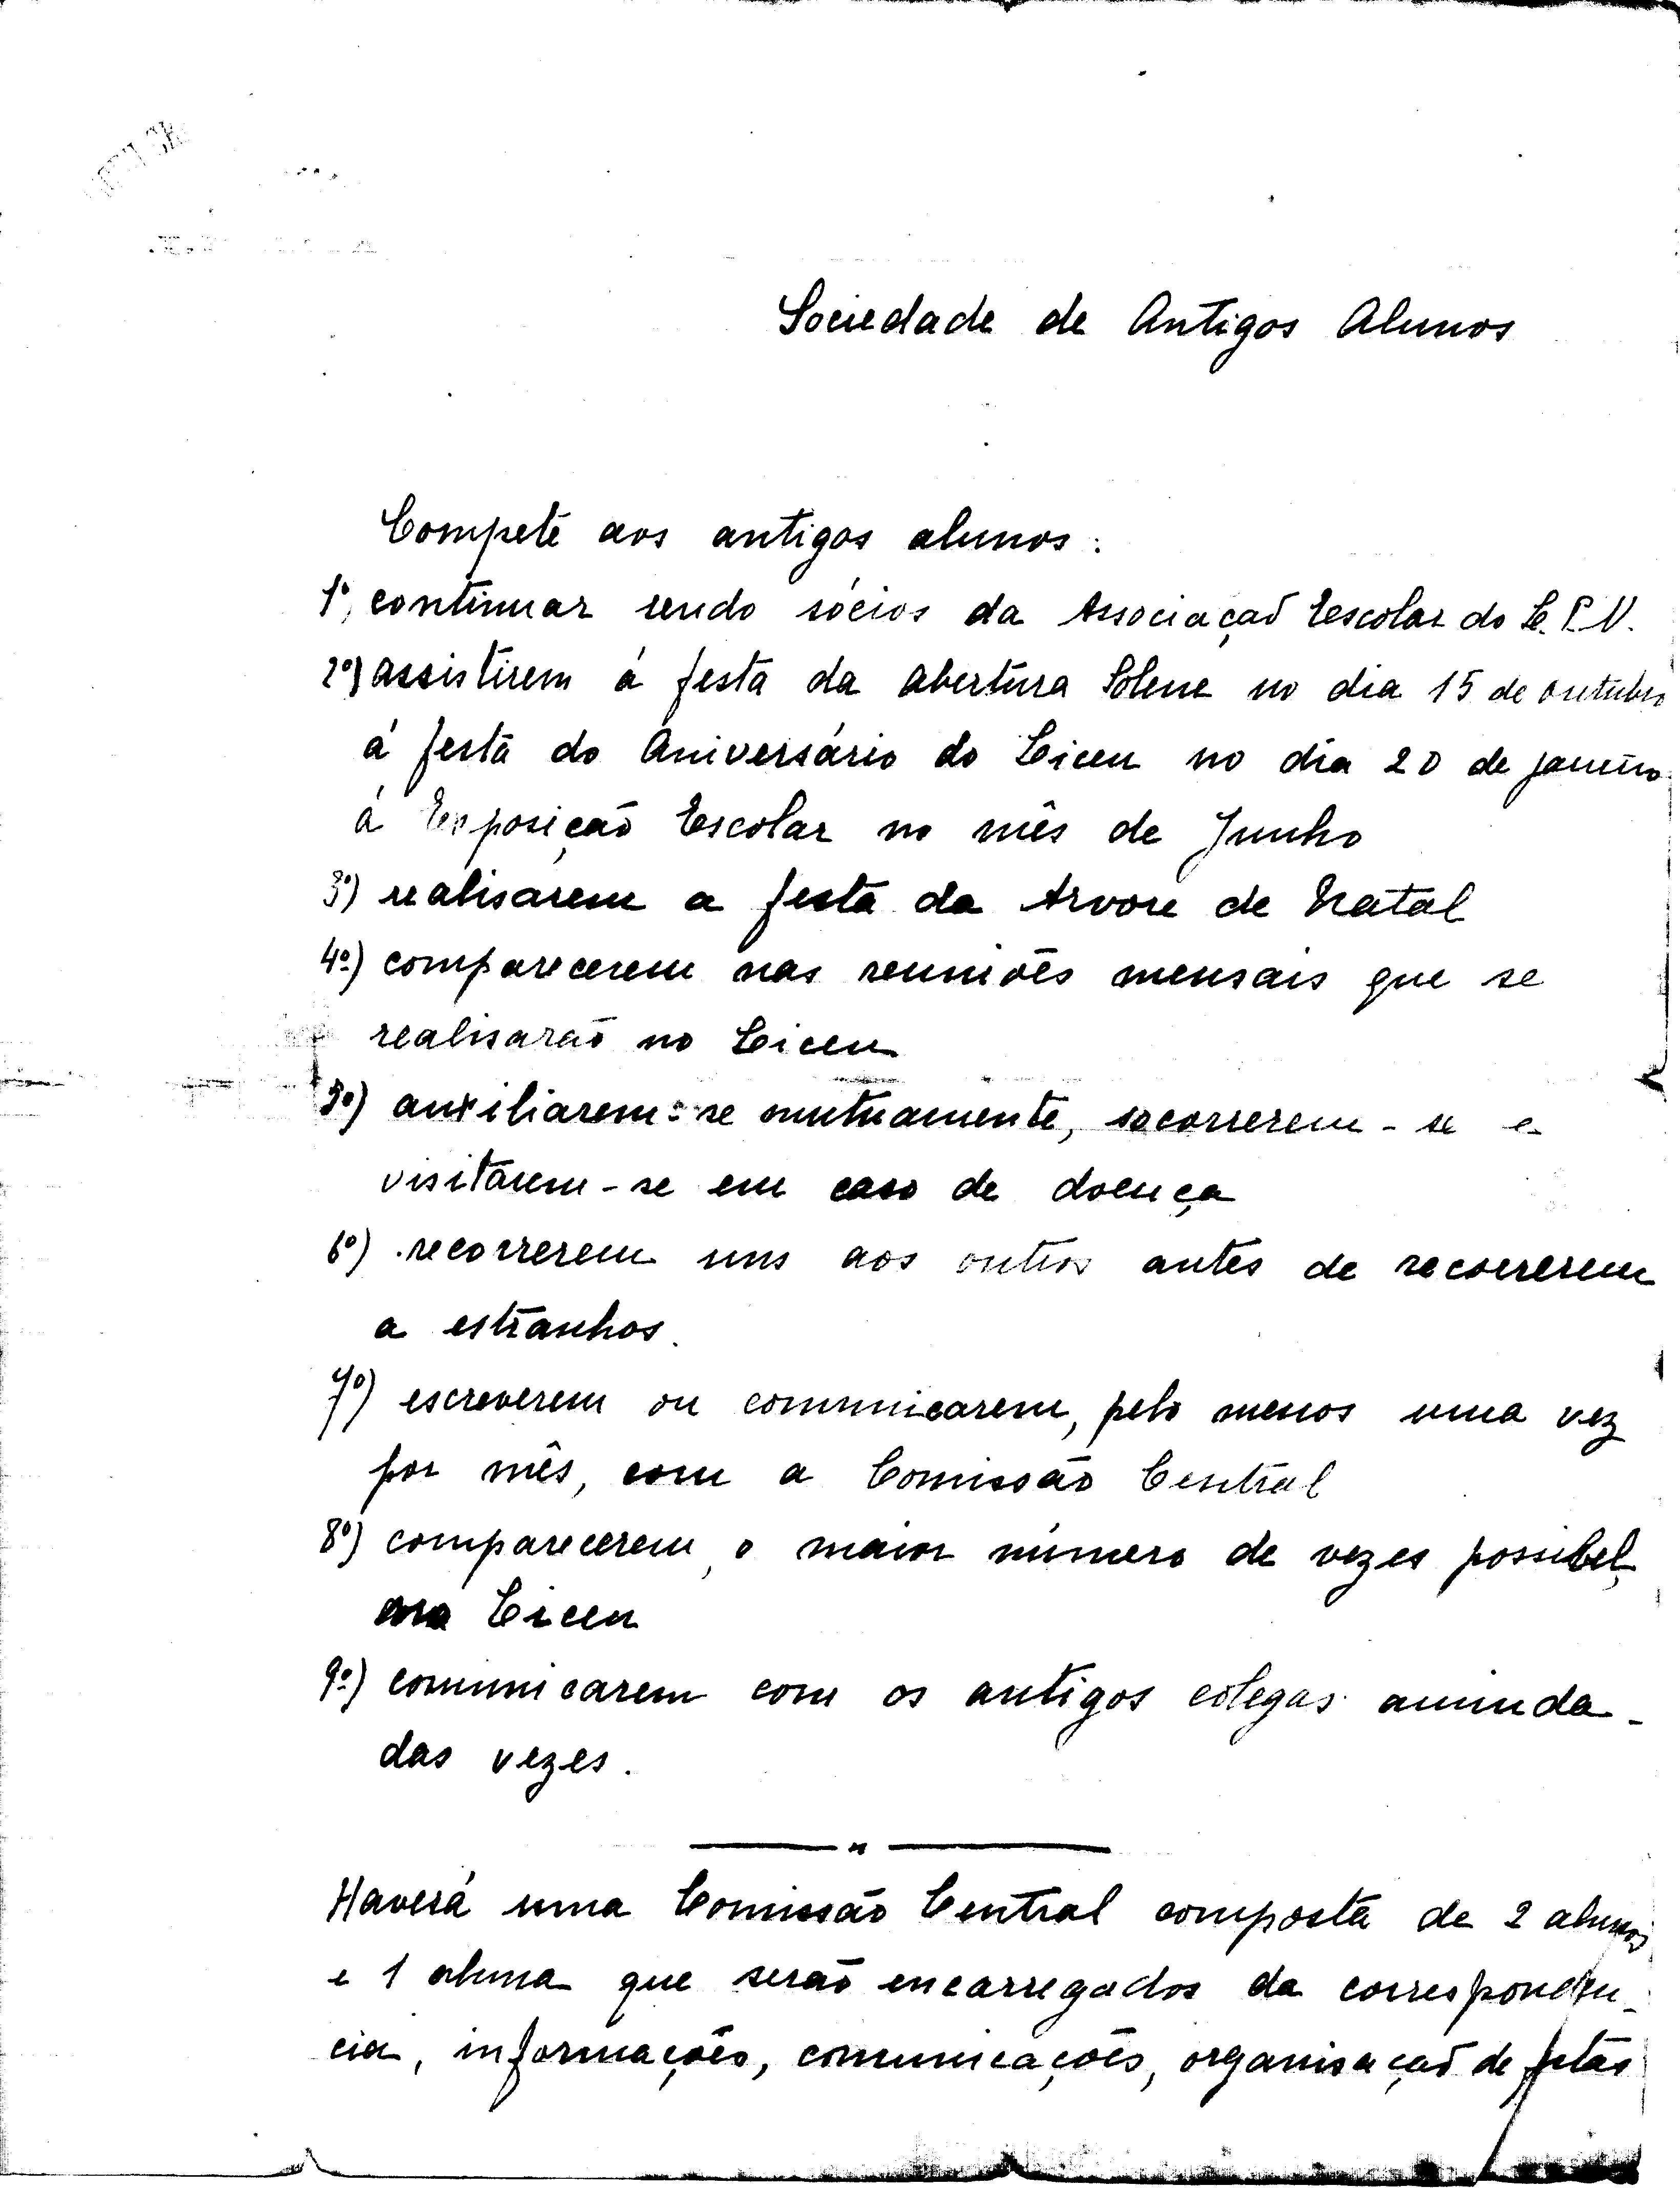 Sociedade de Antigos Alunos
Compete aos antigos alunos:
1º, continuar sendo sócios da Associação Escolar do L. P. N.
2º) assistirem á festa da Abertura Solene no dia 15 de outubro
á festa do Aniversário do Liceu no dia 20 de janeiro
á Exposição Escolar no mês de Junho
3º) realisarem a festa da Arvore de Natal
4º) comparecerem nas reuniões mensais que se
realisarão no Liceu
5º) auxiliarem-se mutuamente, socorrerem-se e
visitarem-se em caso de doença
6º) recorrerem uns aos outros antes de recorrerem
a estranhos.
7º) escreverem ou comunicarem, pelo menos uma vez
por mês, com a Comissão Central
8º) comparecerem, o maior número de vezes possibel,
no Liceu
9º) comunicarem com os antigos colegas amiuda-
das vezes.
Haverá uma Comissão Central composta de 2 alunos
e 1 aluna que serão encarregados da corresponden-
cia, informações, comunicações, organisação de festas